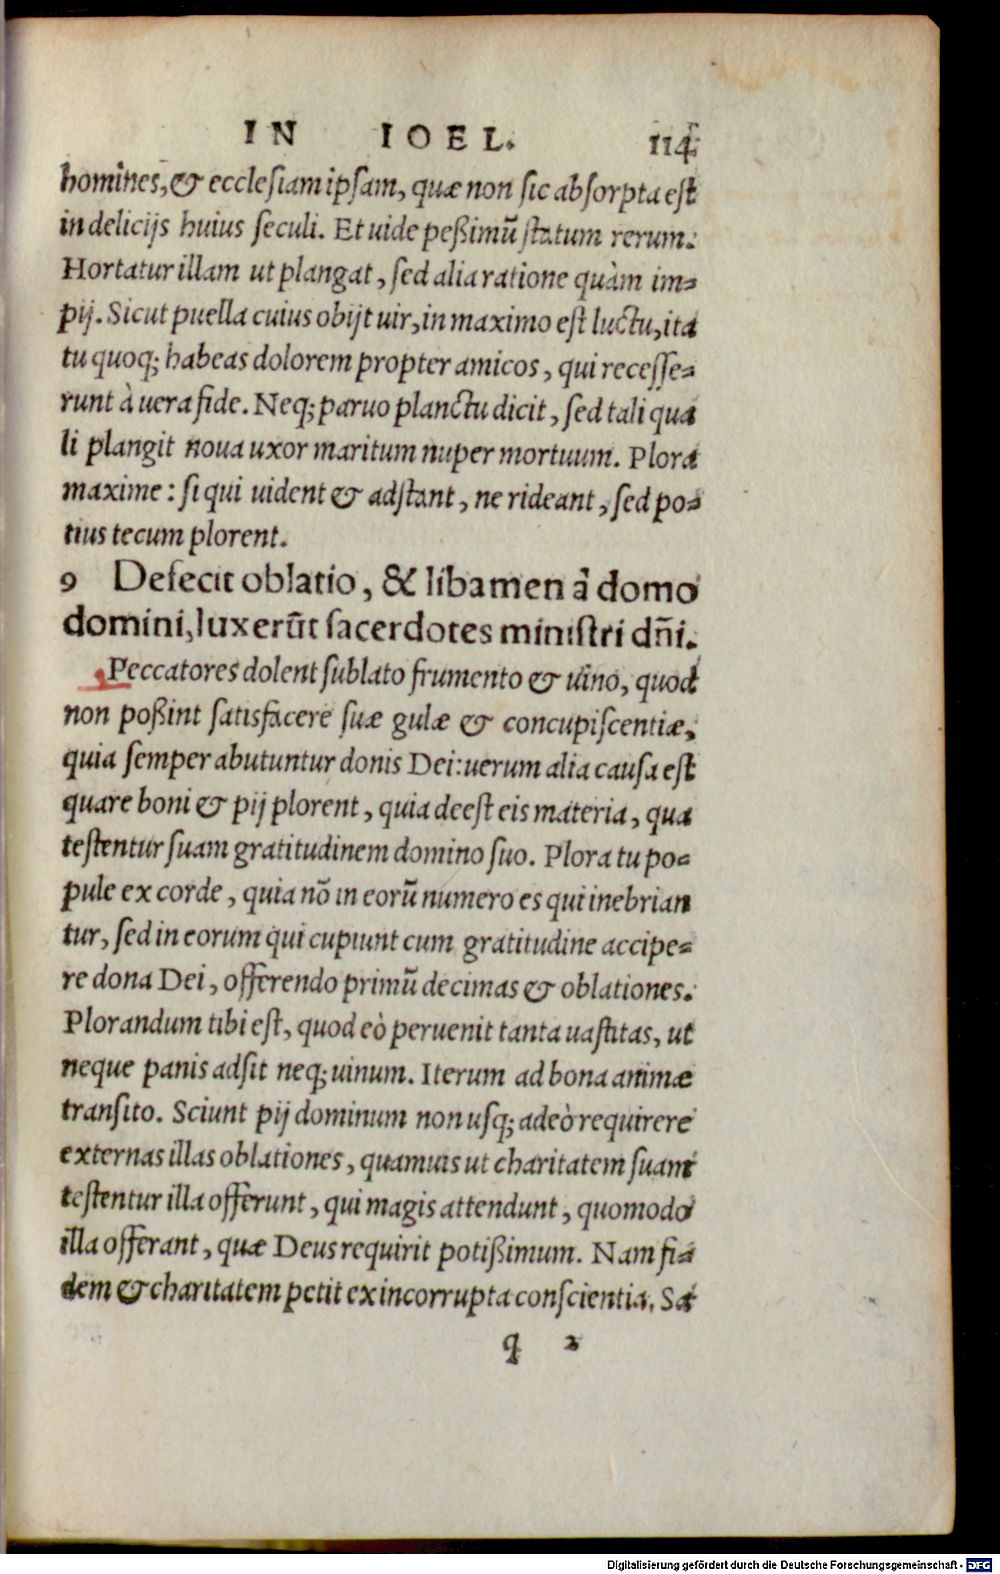 IN IOEL. 114
homines, & ecclesiam ipsam, quæ non sic absorpta est
in delicijs huius seculi. Et uide peßimũ statum rerum.
Hortatur illam ut plangat, sed alia ratione quàm im-
pij. Sicut puella cuius obijt uir, in maximo est luctu, ita
tu quoq; habeas dolorem propter amicos, qui recesse-
runt à uera fide. Neq; paruo planctu dicit, sed tali qua
li plangit noua uxor maritum nuper mortuum. Plora
maxime: si qui uident & adstant, ne rideant, sed po-
tius tecum plorent.
9 Defecit oblatio, & libamen à domo
domini, luxerũt sacerdotes ministri dñi.
Peccatores dolent sublato frumento & uino, quod
non poßint satisfacere suæ gulæ & concupiscentiæ,
quia semper abutuntur donis Dei: uerum alia causa est
quare boni & pij plorent, quia deest eis materia, qua
testentur suam gratitudinem domino suo. Plora tu po-
pule ex corde, quia nõ in eorũ numero es qui inebrian
tur, sed in eorum qui cupiunt cum gratitudine accipe-
re dona Dei, offerendo primũ decimas & oblationes.
Plorandum tibi est, quod eò peruenit tanta uastitas, ut
neque panis adsit neq; uinum. Iterum ad bona animæ
transito. Sciunt pij dominum non usq; adeò requirere
externas illas oblationes, quamuis ut charitatem suam
testentur illa offerunt, qui magis attendunt, quomodo
illa offerant, quæ Deus requirit potißimum. Nam fi-
dem & charitatem petit ex incorrupta conscientia. Sa
q 2
Digitalisierung gefördert durch die Deutsche Forschungsgemeinschaft - DFG